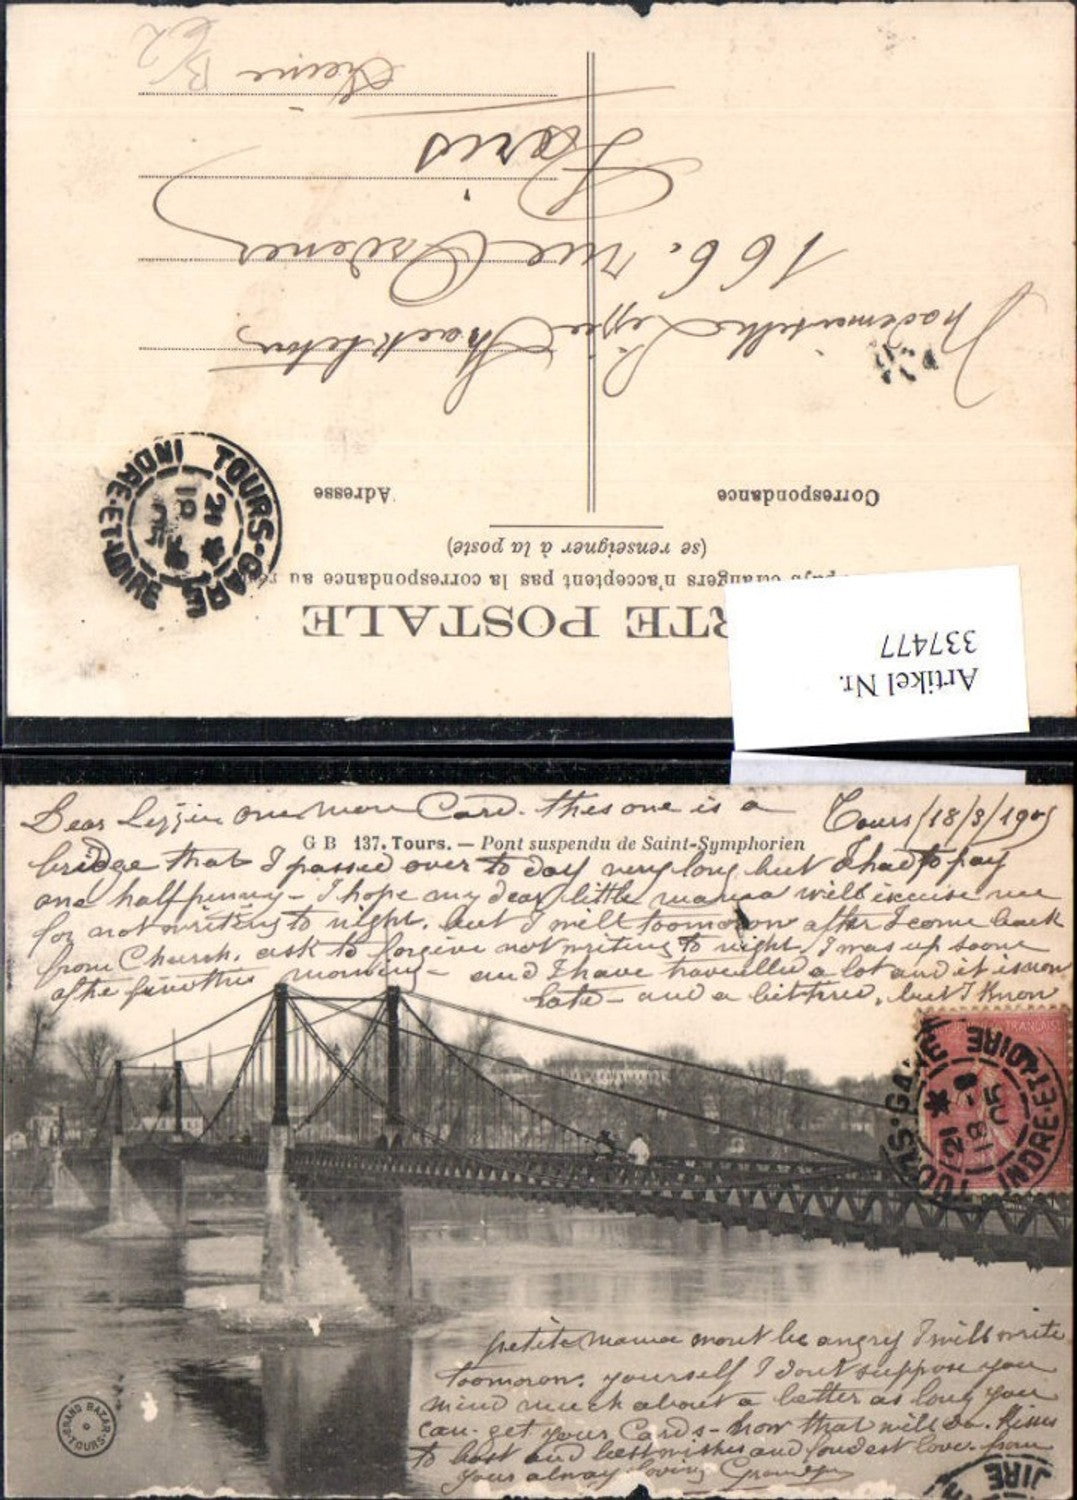 Seine
Paris
166. rue
Mademoiselle Lizzie Shackleton
Correspondance
Adresse
(se renseigner à la poste)
pays étrangers n'acceptent pas la correspondance au
RTE POSTALE
TOURS-GARE
INDRE-ET-LOIRE
21 *
18
Artikel Nr.
337477
Dear Lizzie one more Card. this one is a
Tours/18/3/1905
G B 137. Tours. — Pont suspendu de Saint-Symphorien
bridge that I passed over to day very long but I had to pay
one half penny - I hope my dear little mama will excuse me
for not writing to night. but I will toomorow after I come back
from Church. ask to forgive not writing to night. I was up soone
after five this morning - and I have travelled a lot and it is now
late - and a bit tired, but I know
FRANÇAIS
TOURS-GARE
INDRE-ET-LOIRE
21 *
18 -3
05
petite mama wont be angry I will write
toomorow. yourself I dont suppose you
mind much about a letter as long you
can get your Cards - now that will do. Kisses
to best and best wishes and fondest love from
your alway loving
GRAND BAZAR
TOURS